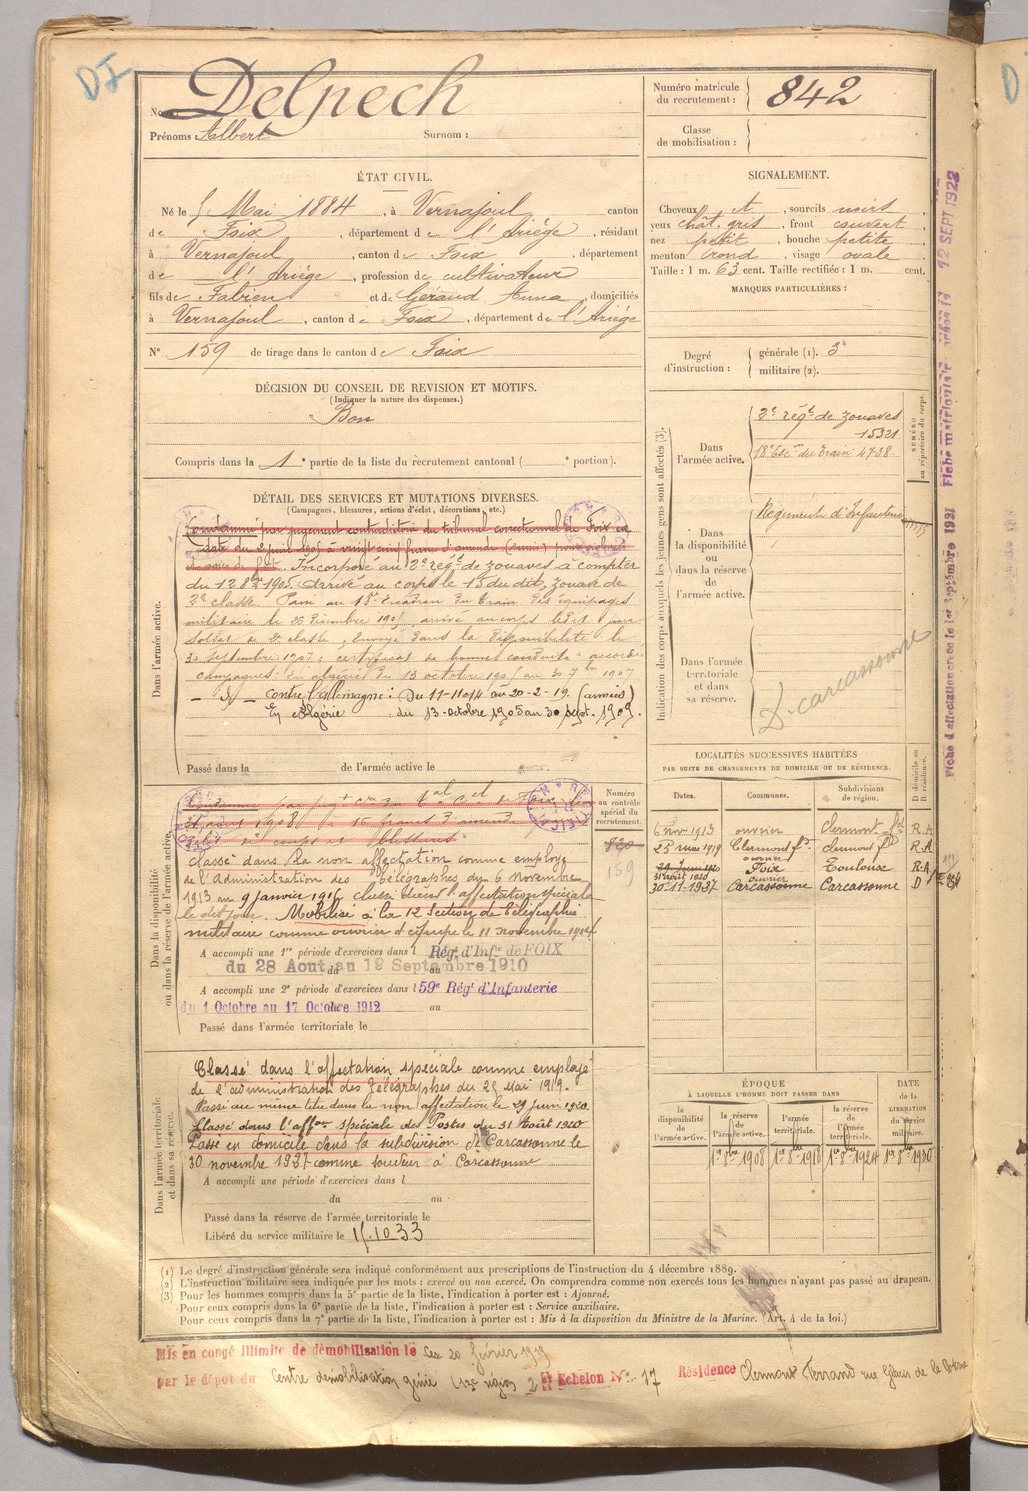 DF
Nom Delpech
Prénoms : Albert Surnom :
Numéro matricule du recrutement : 842
Classe de mobilisation :
ÉTAT CIVIL.
Né le 5 Mai 1884, à Vernajoul canton
de Foix, département de l'Ariège, résidant
à Vernajoul, canton de Foix, département
de l'Ariège, profession de cultivateur
fils de Fabien et de Géraud Anna, domiciliés
à Vernajoul, canton de Foix, département de l'Ariège
N° 159 de tirage dans le canton de Foix
SIGNALEMENT.
Cheveux et, sourcils noirs,
yeux chât. gris, front couvert
nez petit, bouche petite
menton rond, visage ovale
Taille : 1 m. 63 cent. Taille rectifiée : 1 m. cent.
MARQUES PARTICULIÈRES :
Degré d'instruction :
générale (1). 3
militaire (2).
DÉCISION DU CONSEIL DE REVISION ET MOTIFS.
(Indiquer la nature des dispenses.)
Bon
Compris dans la 1e partie de la liste du recrutement cantonal ( e portion).
DÉTAIL DES SERVICES ET MUTATIONS DIVERSES.
(Campagnes, blessures, actions d'éclat, décorations, etc.)
Dans l'armée active.
Condamné par jugement contradictoire du tribunal correctionnel de Foix en
date du juin 1905 à vingt cinq francs d'amende
Incorporé au 2e régt de zouaves à compter
du 12 8bre 1905. Arrivé au corps le 13 du dit, zouave de
2e classe. Passé au 18e Escadron du train des équipages
militaire le 26 Décembre 1905, arrivé au corps ledit jour
soldat de 2e classe. Envoyé dans la disponibilité le
30 septembre 1907; certificat de bonne conduite accordé
campagnes: En algérie du 13 octobre 1905 au 30 7bre 1907
contre l'Allemagne : Du 11-11-14 au 20-2-19. (armées)
En Algérie du 13-octobre 1905 au 30 sept. 1909.
Passé dans la de l'armée active le
Indication des corps auxquels les jeunes gens sont affectés (3).
NUMÉRO au répertoire du corps.
Dans l'armée active.
2e régt de zouaves 15321
18e Esc. du Train 4738
Dans la disponibilité ou dans la réserve de l'armée active.
Régiment d'Infanterie
Dans l'armée territoriale et dans sa réserve.
D. Carcassonne
Fiche matriculaire créée le 12 SEPT 1922
Fiche d'affectation créée le 1er Septembre 1931
LOCALITÉS SUCCESSIVES HABITÉES
PAR SUITE DE CHANGEMENTS DE DOMICILE OU DE RÉSIDENCE.
Dates. Communes. Subdivisions de région. D domicile ou R résidence.
6 nov 1913 ouvrier Clermont fd R.A
25 mai 1919 Clermont fd clermont fd R.A
29 Juin 1920
31 août 1920 ouvrier Foix Toulouse R.A
30-11-1937 ouvrier Carcassonne Carcassonne D
Dans la disponibilité ou dans la réserve de l'armée active.
Numéro au contrôle spécial du recrutement.
159
août 1908 à 16 francs d'amende
coups et blessures
classé dans la non affectation comme employé
de l'Administration des Télégraphes du 6 Novembre
1913 au 9 janvier 1914 classé dans l'affectation spéciale
le dit jour. Mobilisé à la 12 Section de Télégraphie
militaire comme ouvrier d'équipe le 11 novembre 1914
A accompli une 1re période d'exercices dans l Régt. d'Infie de FOIX
du 28 Aout au 19 Septembre 1910
A accompli une 2e période d'exercices dans l 59e Régt d'Infanterie
du 1 Octobre au 17 Octobre 1912 au
Passé dans l'armée territoriale le
Dans l'armée territoriale et dans sa réserve.
Classé dans l'affectation spéciale comme employé
de l'administration des Télégraphes du 25 Mai 1919.
Passé au même titre dans la non affectation le 29 juin 1920.
Classé dans l'affon spéciale des Postes du 31 Août 1920
Passé en domicile dans la subdivision de Carcassonne le
30 novembre 1937 comme soudeur à Carcassonne
A accompli une période d'exercices dans l
du au
Passé dans la réserve de l'armée territoriale le
Libéré du service militaire le 15.10.33
ÉPOQUE
À LAQUELLE L'HOMME DOIT PASSER DANS
la disponibilité de l'armée active. la réserve de l'armée active. l'armée territoriale. la réserve de l'armée territoriale. DATE de la LIBÉRATION du service militaire.
1er 8bre 1908 1er 8bre 1918 1er 8bre 1924 1er 8bre 1930
(1) Le degré d'instruction générale sera indiqué conformément aux prescriptions de l'instruction du 4 décembre 1889.
(2) L'instruction militaire sera indiquée par les mots : exercé ou non exercé. On comprendra comme non exercés tous les hommes n'ayant pas passé au drapeau.
(3) Pour les hommes compris dans la 5e partie de la liste, l'indication à porter est : Ajourné.
Pour ceux compris dans la 6e partie de la liste, l'indication à porter est : Service auxiliaire.
Pour ceux compris dans la 7e partie de la liste, l'indication à porter est : Mis à la disposition du Ministre de la Marine. (Art. 4 de la loi.)
Mis en congé illimité de démobilisation le 20 février 1919
par le dépôt du Centre démobilisation génie 2e Echelon N° 17 Résidence Clermont Ferrand rue